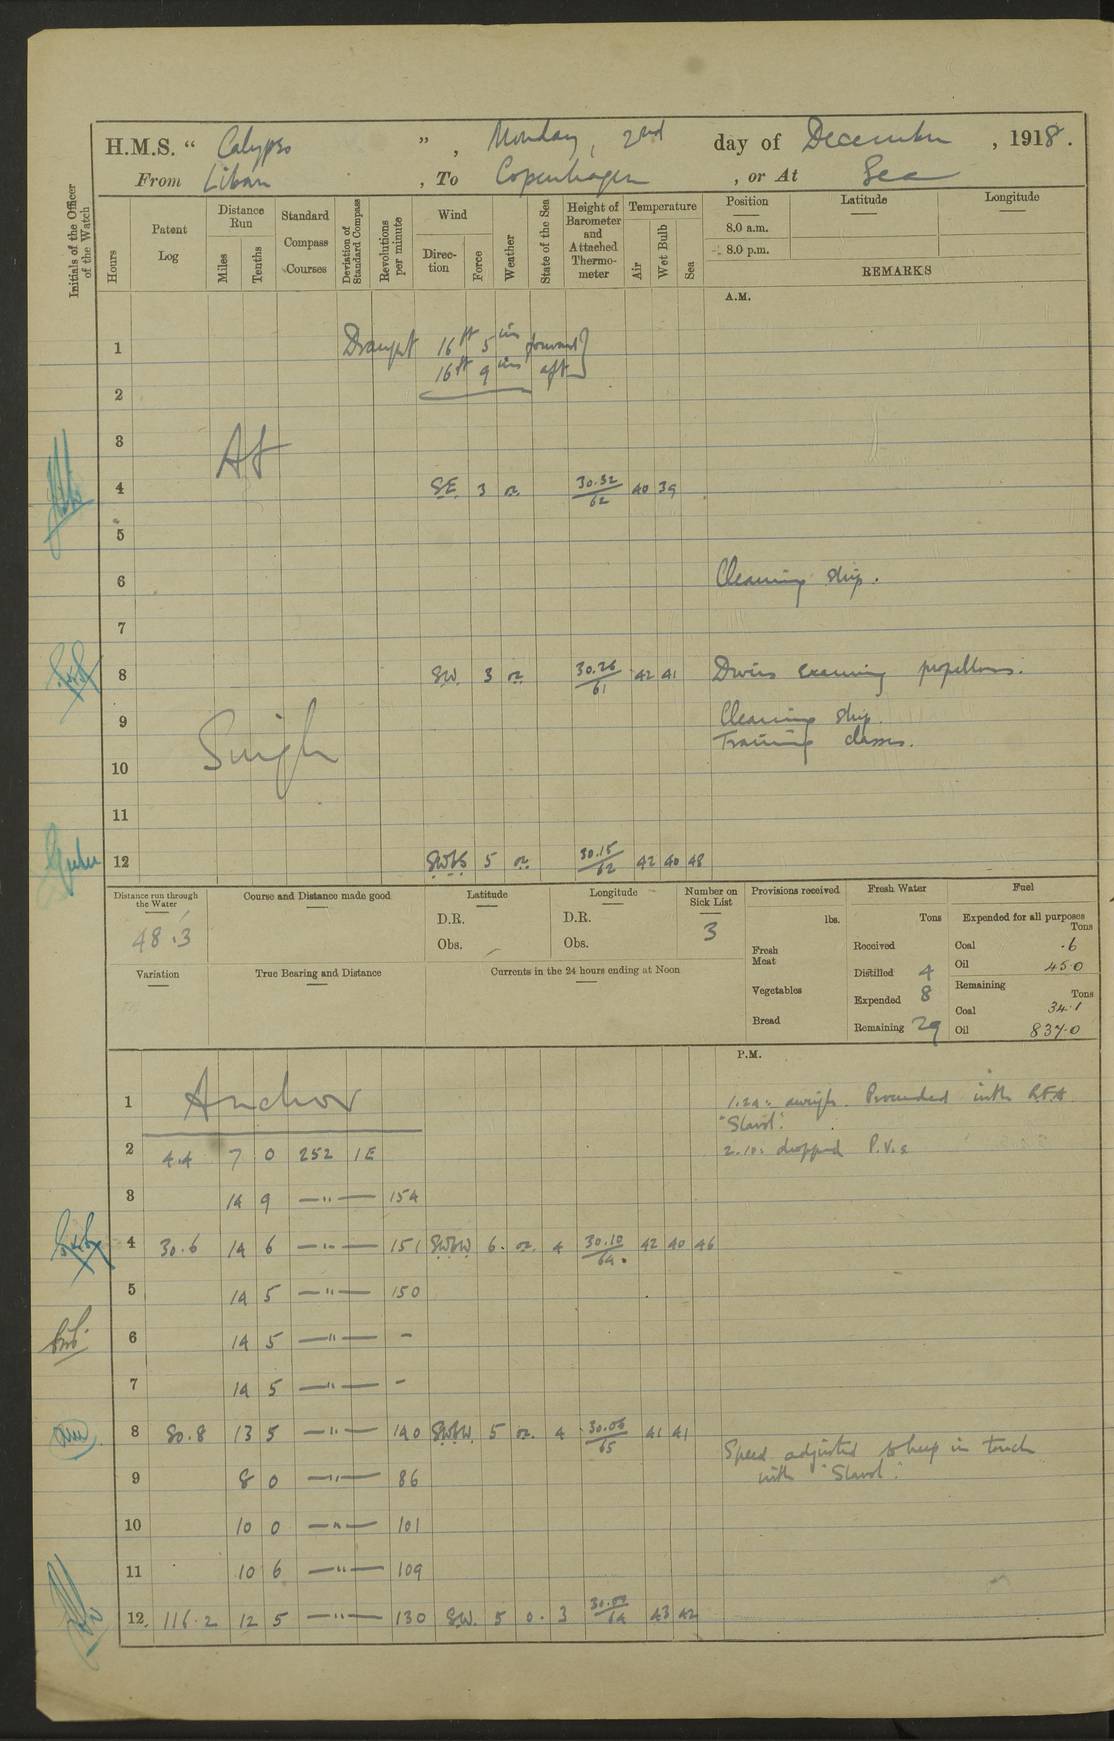 H.M.S. “ Calypso ” , Monday, 2nd day of December , 1918.
From Libau , To Copenhagen , or At Sea
Initials of the Officer of the Watch
Hours
Patent Log
Distance Run
Miles
Tenths
Standard Compass Courses
Deviation of Standard Compass
Revolutions per minute
Wind
Direction
Force
Weather
State of the Sea
Height of Barometer and Attached Thermometer
Temperature
Air
Wet Bulb
Sea
Position
Latitude
Longitude
8.0 a.m.
8.0 p.m.
REMARKS
A.M.
1 Draught 16ft 5ins forward
16ft 9ins aft
2
3 At
4 SE. 3 30.32/62 40 39
5
6 Cleaning ship.
7
8 SW. 3 30.26/61 42 41 Divers examining propellers.
9 Cleaning ship.
Training classes.
Single
10
11
12 SWbS 5 30.15/62 42 40 48
Distance run through the Water
48.3
Course and Distance made good
Latitude
D.R.
Obs.
Longitude
D.R.
Obs.
Number on Sick List
3
Provisions received
lbs.
Fresh Meat
Vegetables
Bread
Fresh Water
Tons
Received
Distilled 4
Expended 8
Remaining 29
Fuel
Expended for all purposes
Tons
Coal .6
Oil 45.0
Remaining
Tons
Coal 34.1
Oil 837.0
Variation
True Bearing and Distance
Currents in the 24 hours ending at Noon
P.M.
1 Anchor 1.20: aweigh. Proceeded with RFA
"Slavol".
2 4.4 7 0 252 1E 2.10: dropped P.V.s
3 14 9 —"— 154
4 30.6 14 6 —"— 151 SWbW 6. 4 30.10/64. 42 40 46
5 14 5 —"— 150
6 14 5 —"— -
7 14 5 —"— -
8 80.8 13 5 —"— 140 SWbW. 5 4 30.06/65 41 41
Speed adjusted to keep in touch
with "Slavol".
9 8 0 —"— 86
10 10 0 —"— 101
11 10 6 —"— 109
12. 116.2 12 5 —"— 130 SW. 5 o. 3 43 42